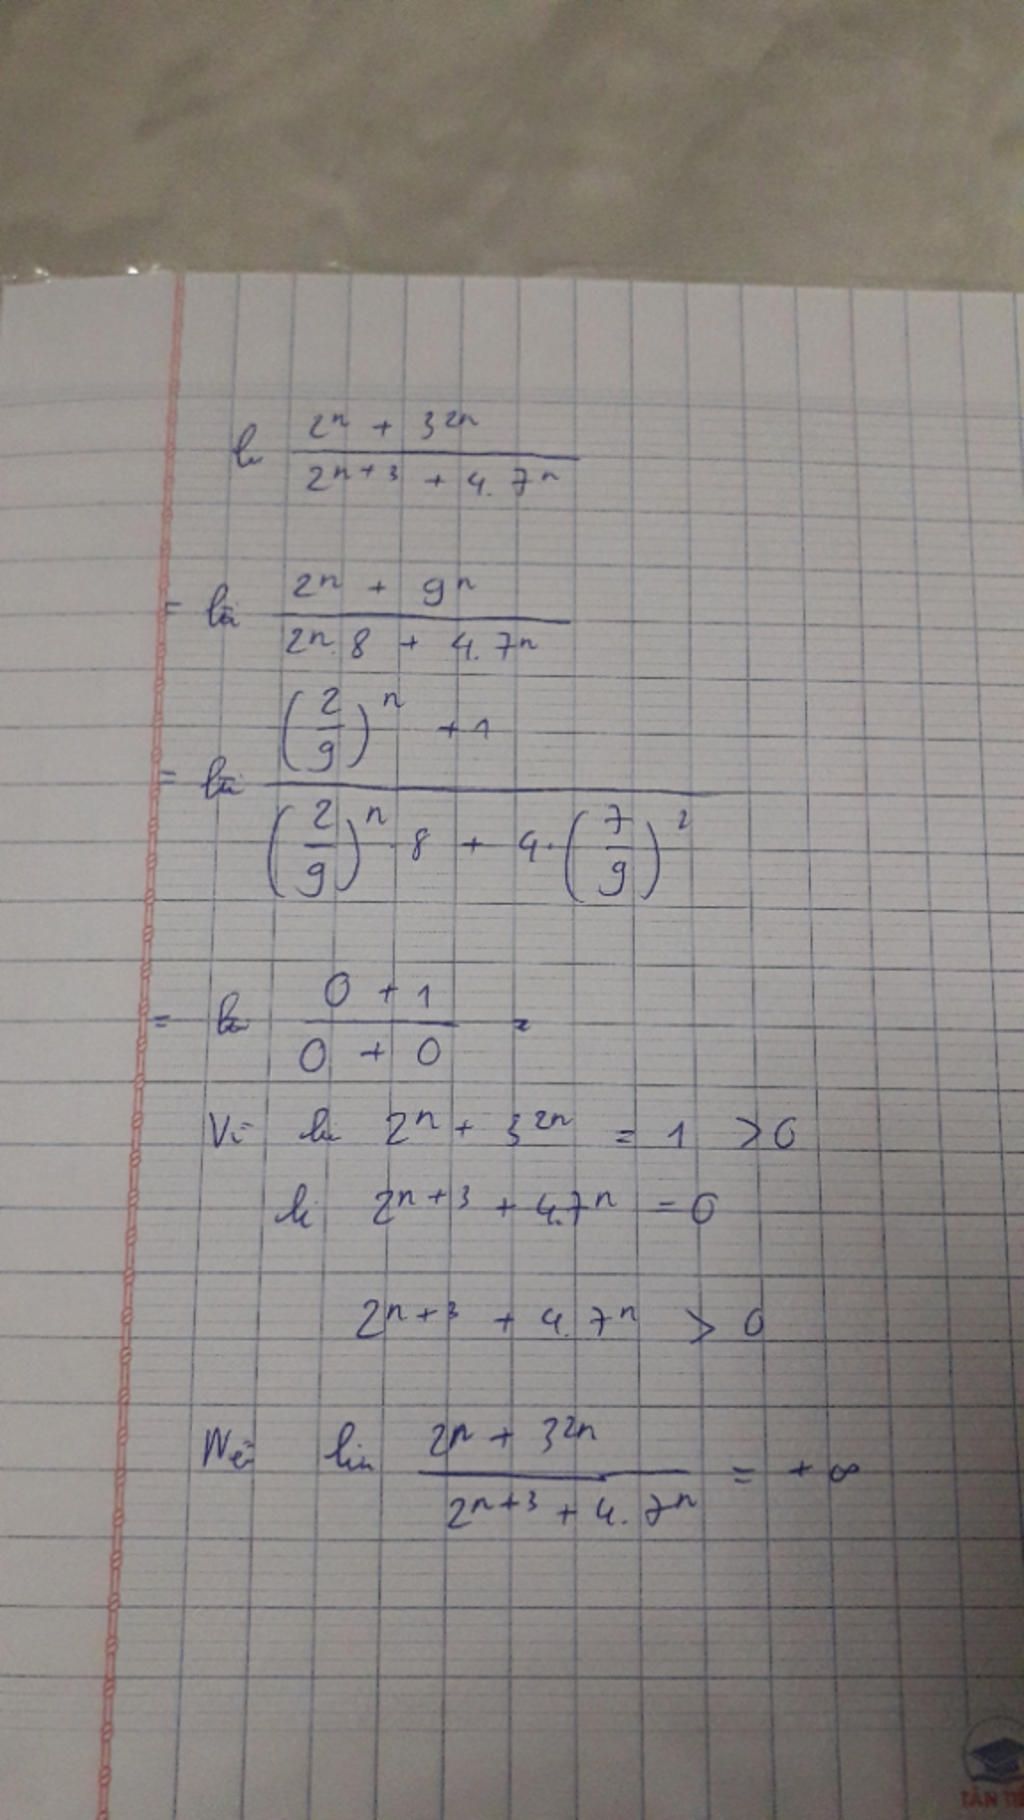 lim (2ⁿ + 3²ⁿ) / (2ⁿ⁺³ + 4.7ⁿ)
= lim (2ⁿ + 9ⁿ) / (2ⁿ.8 + 4.7ⁿ)
= lim ((2/9)ⁿ + 1) / ((2/9)ⁿ.8 + 4.(7/9)²)
= lim (0 + 1) / (0 + 0) =
Vì lim 2ⁿ + 3²ⁿ = 1 > 0
li 2ⁿ⁺³ + 4.7ⁿ = 0
2ⁿ⁺³ + 4.7ⁿ > 0
Nên lim (2ⁿ + 3²ⁿ) / (2ⁿ⁺³ + 4.7ⁿ) = +∞